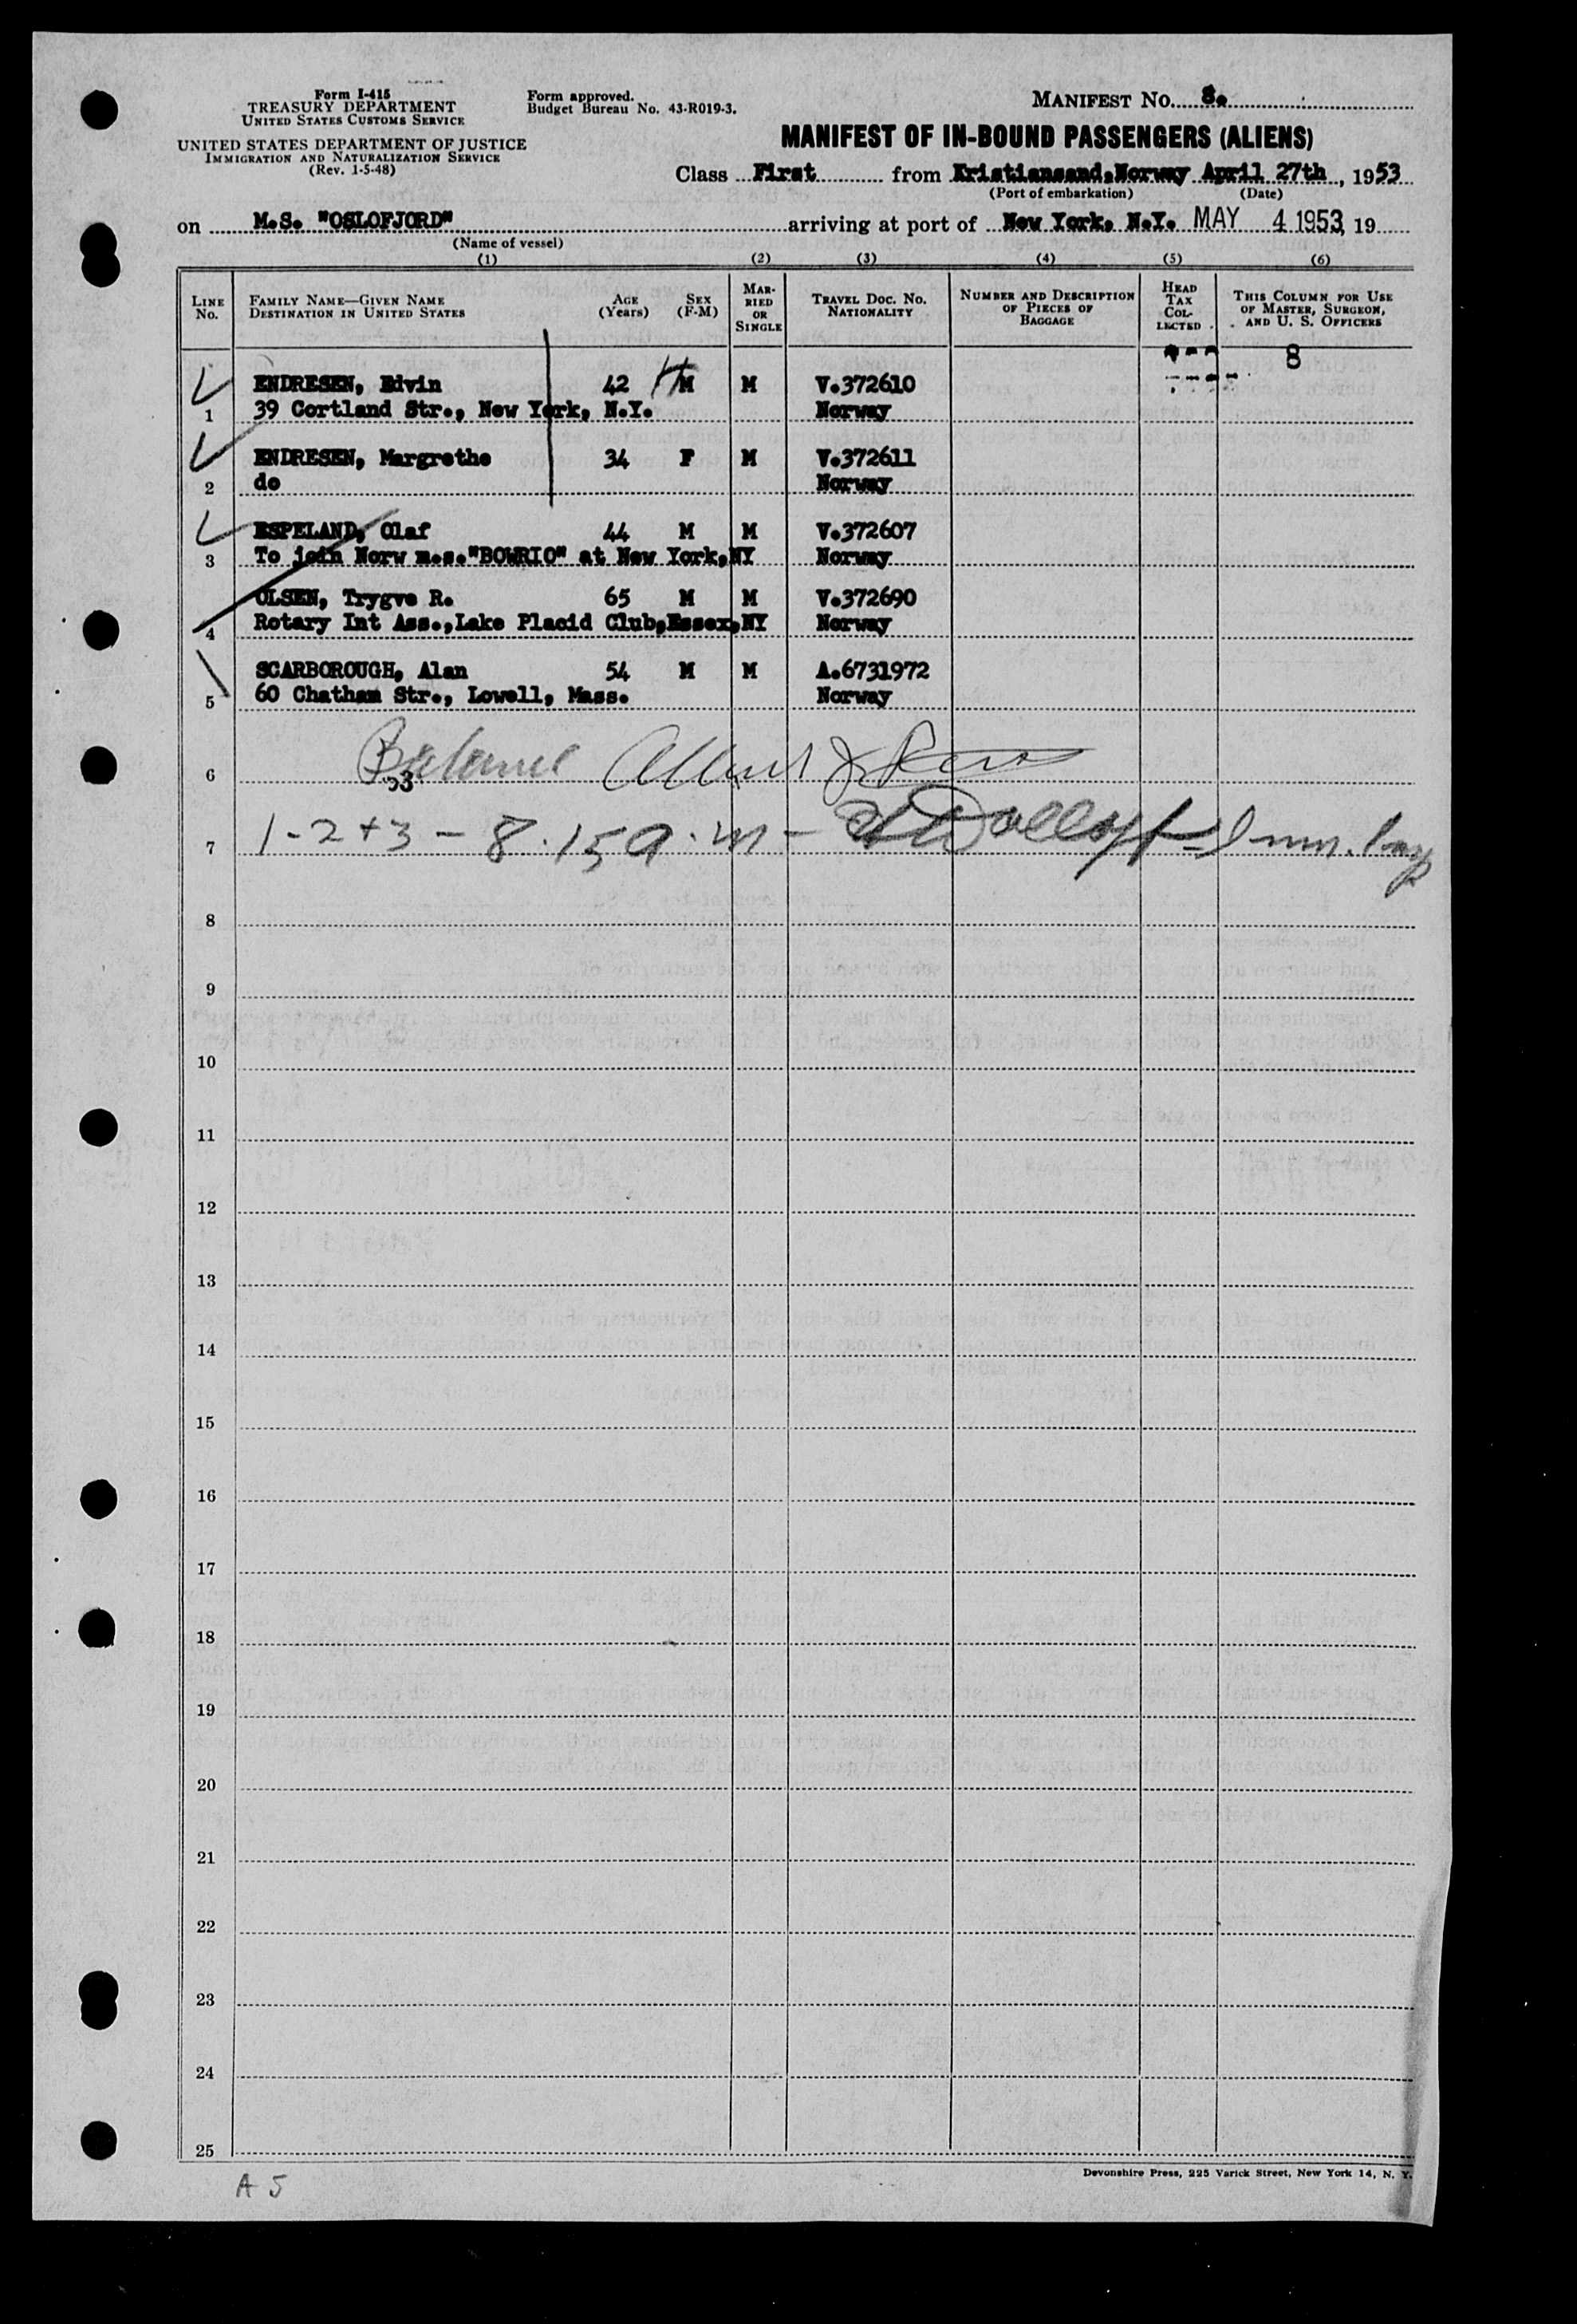 Form I-415
TREASURY DEPARTMENT
UNITED STATES CUSTOMS SERVICE
UNITED STATES DEPARTMENT OF JUSTICE
IMMIGRATION AND NATURALIZATION SERVICE
(Rev. 1-5-48)
Form approved.
Budget Bureau No. 43-R019-3.
MANIFEST NO. 8.
MANIFEST OF IN-BOUND PASSENGERS (ALIENS)
Class First from Kristiansand, Norway April 27th, 1953
(Port of embarkation) (Date)
on M.S. "OSLOFJORD" arriving at port of New York, N.Y. MAY 4 1953, 19
(Name of vessel)
(1) (2) (3) (4) (5) (6)
LINE No. FAMILY NAME—GIVEN NAME DESTINATION IN UNITED STATES AGE (Years) SEX (F-M) MARRIED OR SINGLE TRAVEL DOC. NO. NATIONALITY NUMBER AND DESCRIPTION OF PIECES OF BAGGAGE HEAD TAX COLLECTED THIS COLUMN FOR USE OF MASTER, SURGEON, AND U. S. OFFICERS
8
ENDRESEN, Edvin 42 M M V.372610
1 39 Cortland Str., New York, N.Y. Norway
ENDRESEN, Margrethe 34 F M V.372611
2 do Norway
ESPELAND, Olaf 44 M M V.372607
3 To join Norw m.s."BOWRIO" at New York,NY Norway
OLSEN, Trygve R. 65 M M V.372690
4 Rotary Int Ass.,Lake Placid Club,Essex,NY Norway
SCARBOROUGH, Alan 54 M M A.6731972
5 60 Chatham Str., Lowell, Mass. Norway
6 Balance
53
7 1-2+3 - 8.15 a.m - Imm. Insp
8
9
10
11
12
13
14
15
16
17
18
19
20
21
22
23
24
25
Devonshire Press, 225 Varick Street, New York 14, N. Y.
A 5